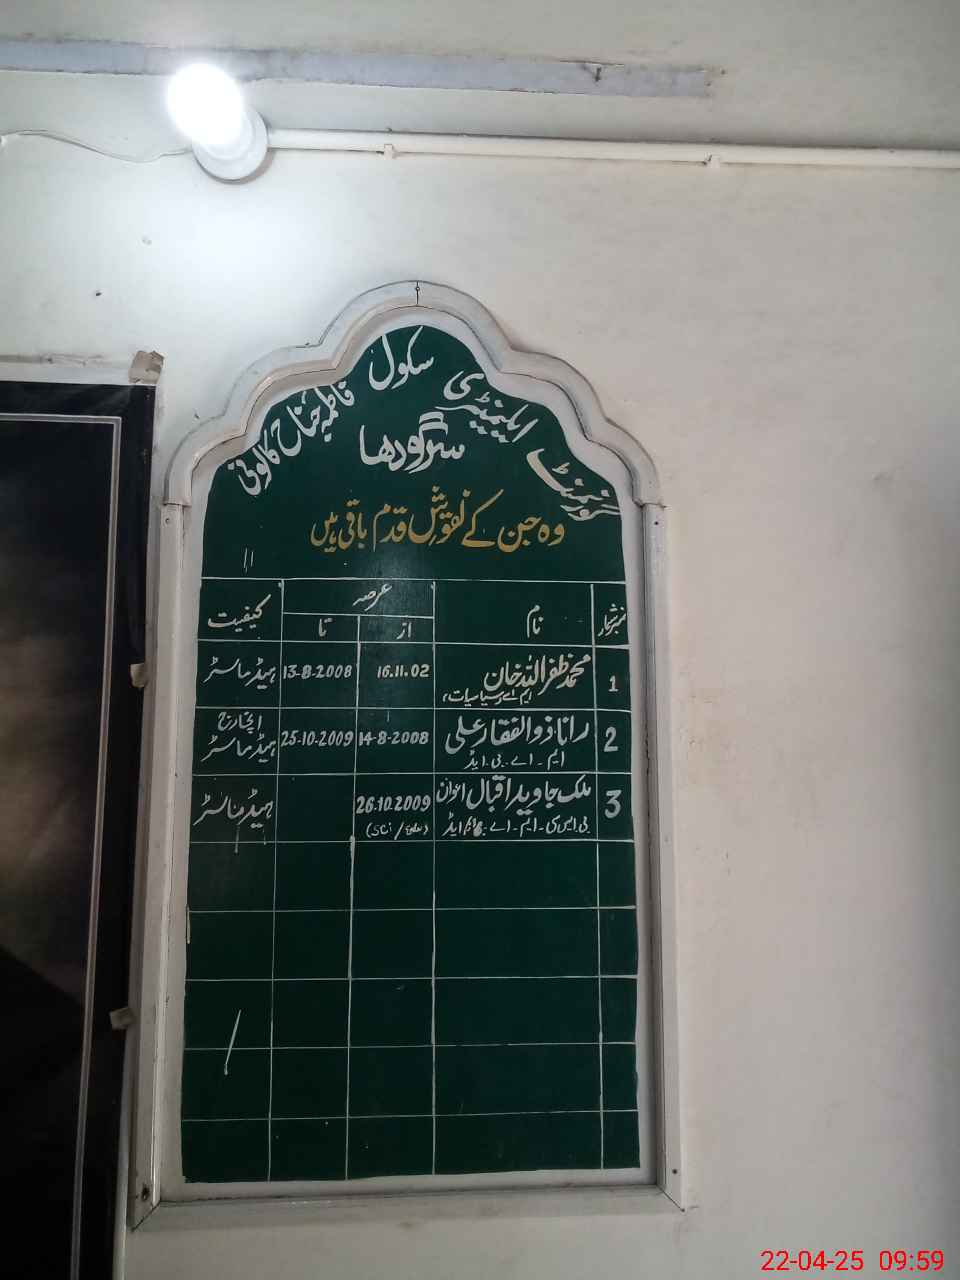 گورنمنٹ ایلیمنٹری سکول فاطمہ جناح کالونی
سرگودھا
وہ جن کے نقوش قدم باقی ہیں
نمبر شمار نام عرصہ کیفیت
از تا
1 محمد ظفر اللہ خان 16.11.02 13-8-2008 ہیڈ ماسٹر
ایم اے سیاسیات
2 رانا ذوالفقار علی 14-8-2008 25-10-2009 انچارج ہیڈ ماسٹر
ایم - اے - بی - ایڈ
3 ملک جاوید اقبال اعوان 26.10.2009 ہیڈ ماسٹر
بی ایس سی - ایم - اے - ایم ایڈ
22-04-25 09:59